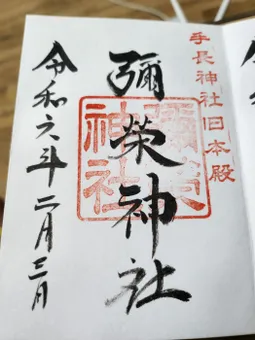 手長神社旧本殿
彌栄神社
彌榮神社
令和六年二月三日